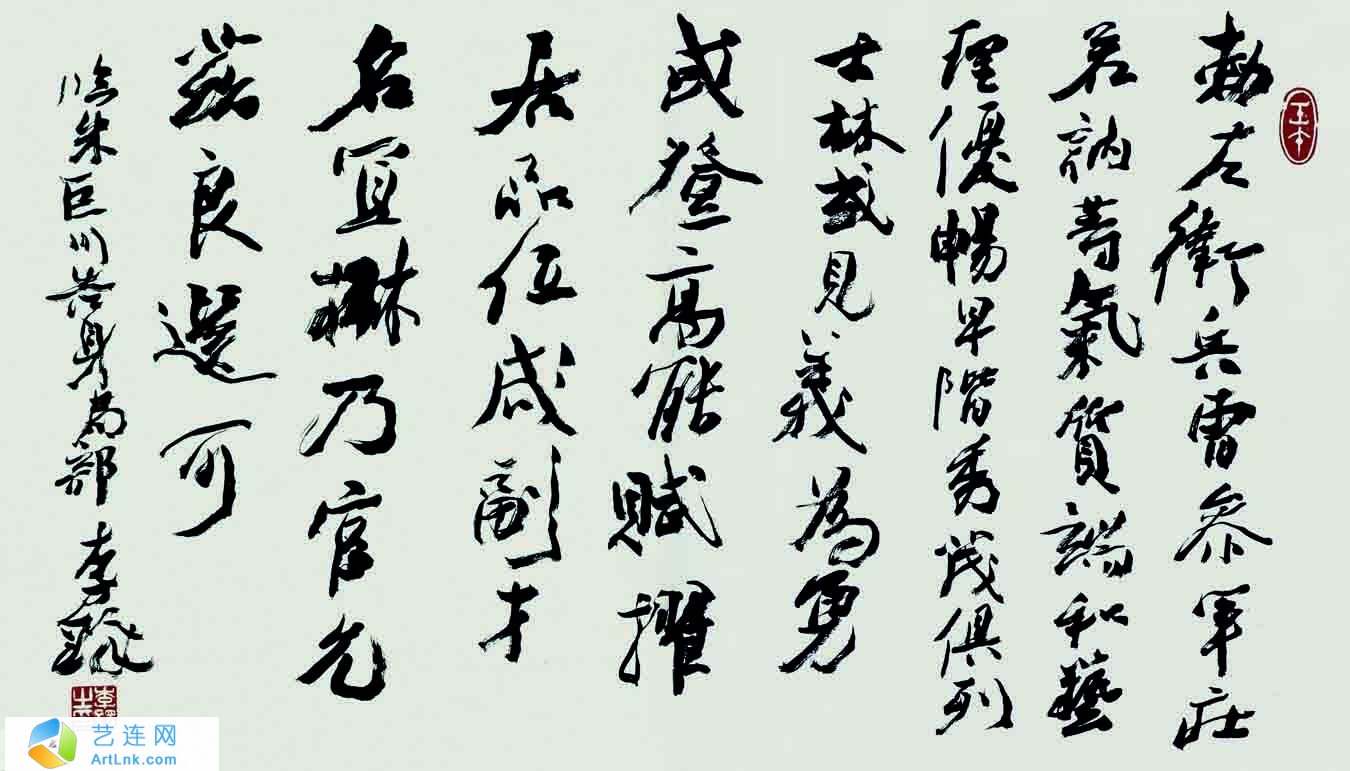 勅左衛兵曹參軍庄
若訥等氣質端和藝
理優暢早階秀茂俱列
士林或見義為勇
或登高能賦擢
居品位咸副才
名宜楙乃官允
茲良選可
臨朱巨川告身局部 李
艺连网
ArtLnk.com